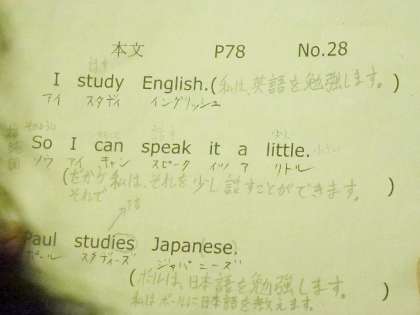 本文 P78 No.28
I study English.(私は、英語を勉強します。)
アイ スタディ イングリッシュ
So I can speak it a little.
ソウ アイ キャン スピーク イツ ア リトル
(だから私は、それを少し話すことができます。)
それで
Paul studies Japanese.
ポール スタディーズ ジャパニーズ
(ポールは、日本語を勉強します。)
私はポールに日本語を教えます。